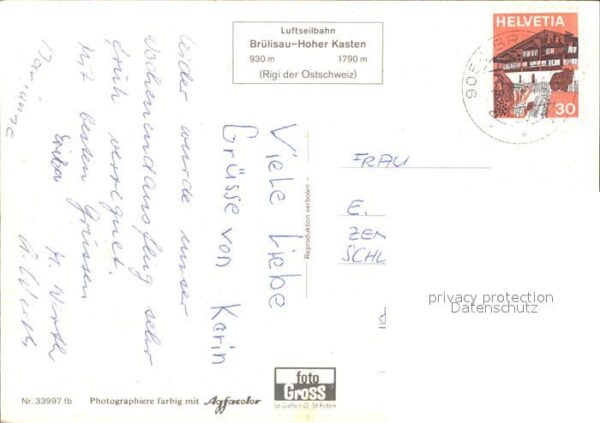 Luftseilbahn
Brülisau-Hoher Kasten
930 m 1790 m
(Rigi der Ostschweiz)
HELVETIA
30
Leider wurde unser
Wochenendausflug sehr
früh verregnet.
Mit besten Grüssen
Viele liebe
Grüsse von Karin
Reproduktion verboten -
FRAU
E.
ZEN
SCHL
privacy protection
Datenschutz
foto
Gross
St. Gallen O St. Fiden
Nr. 33997 fb Photographiere farbig mit Agfacolor